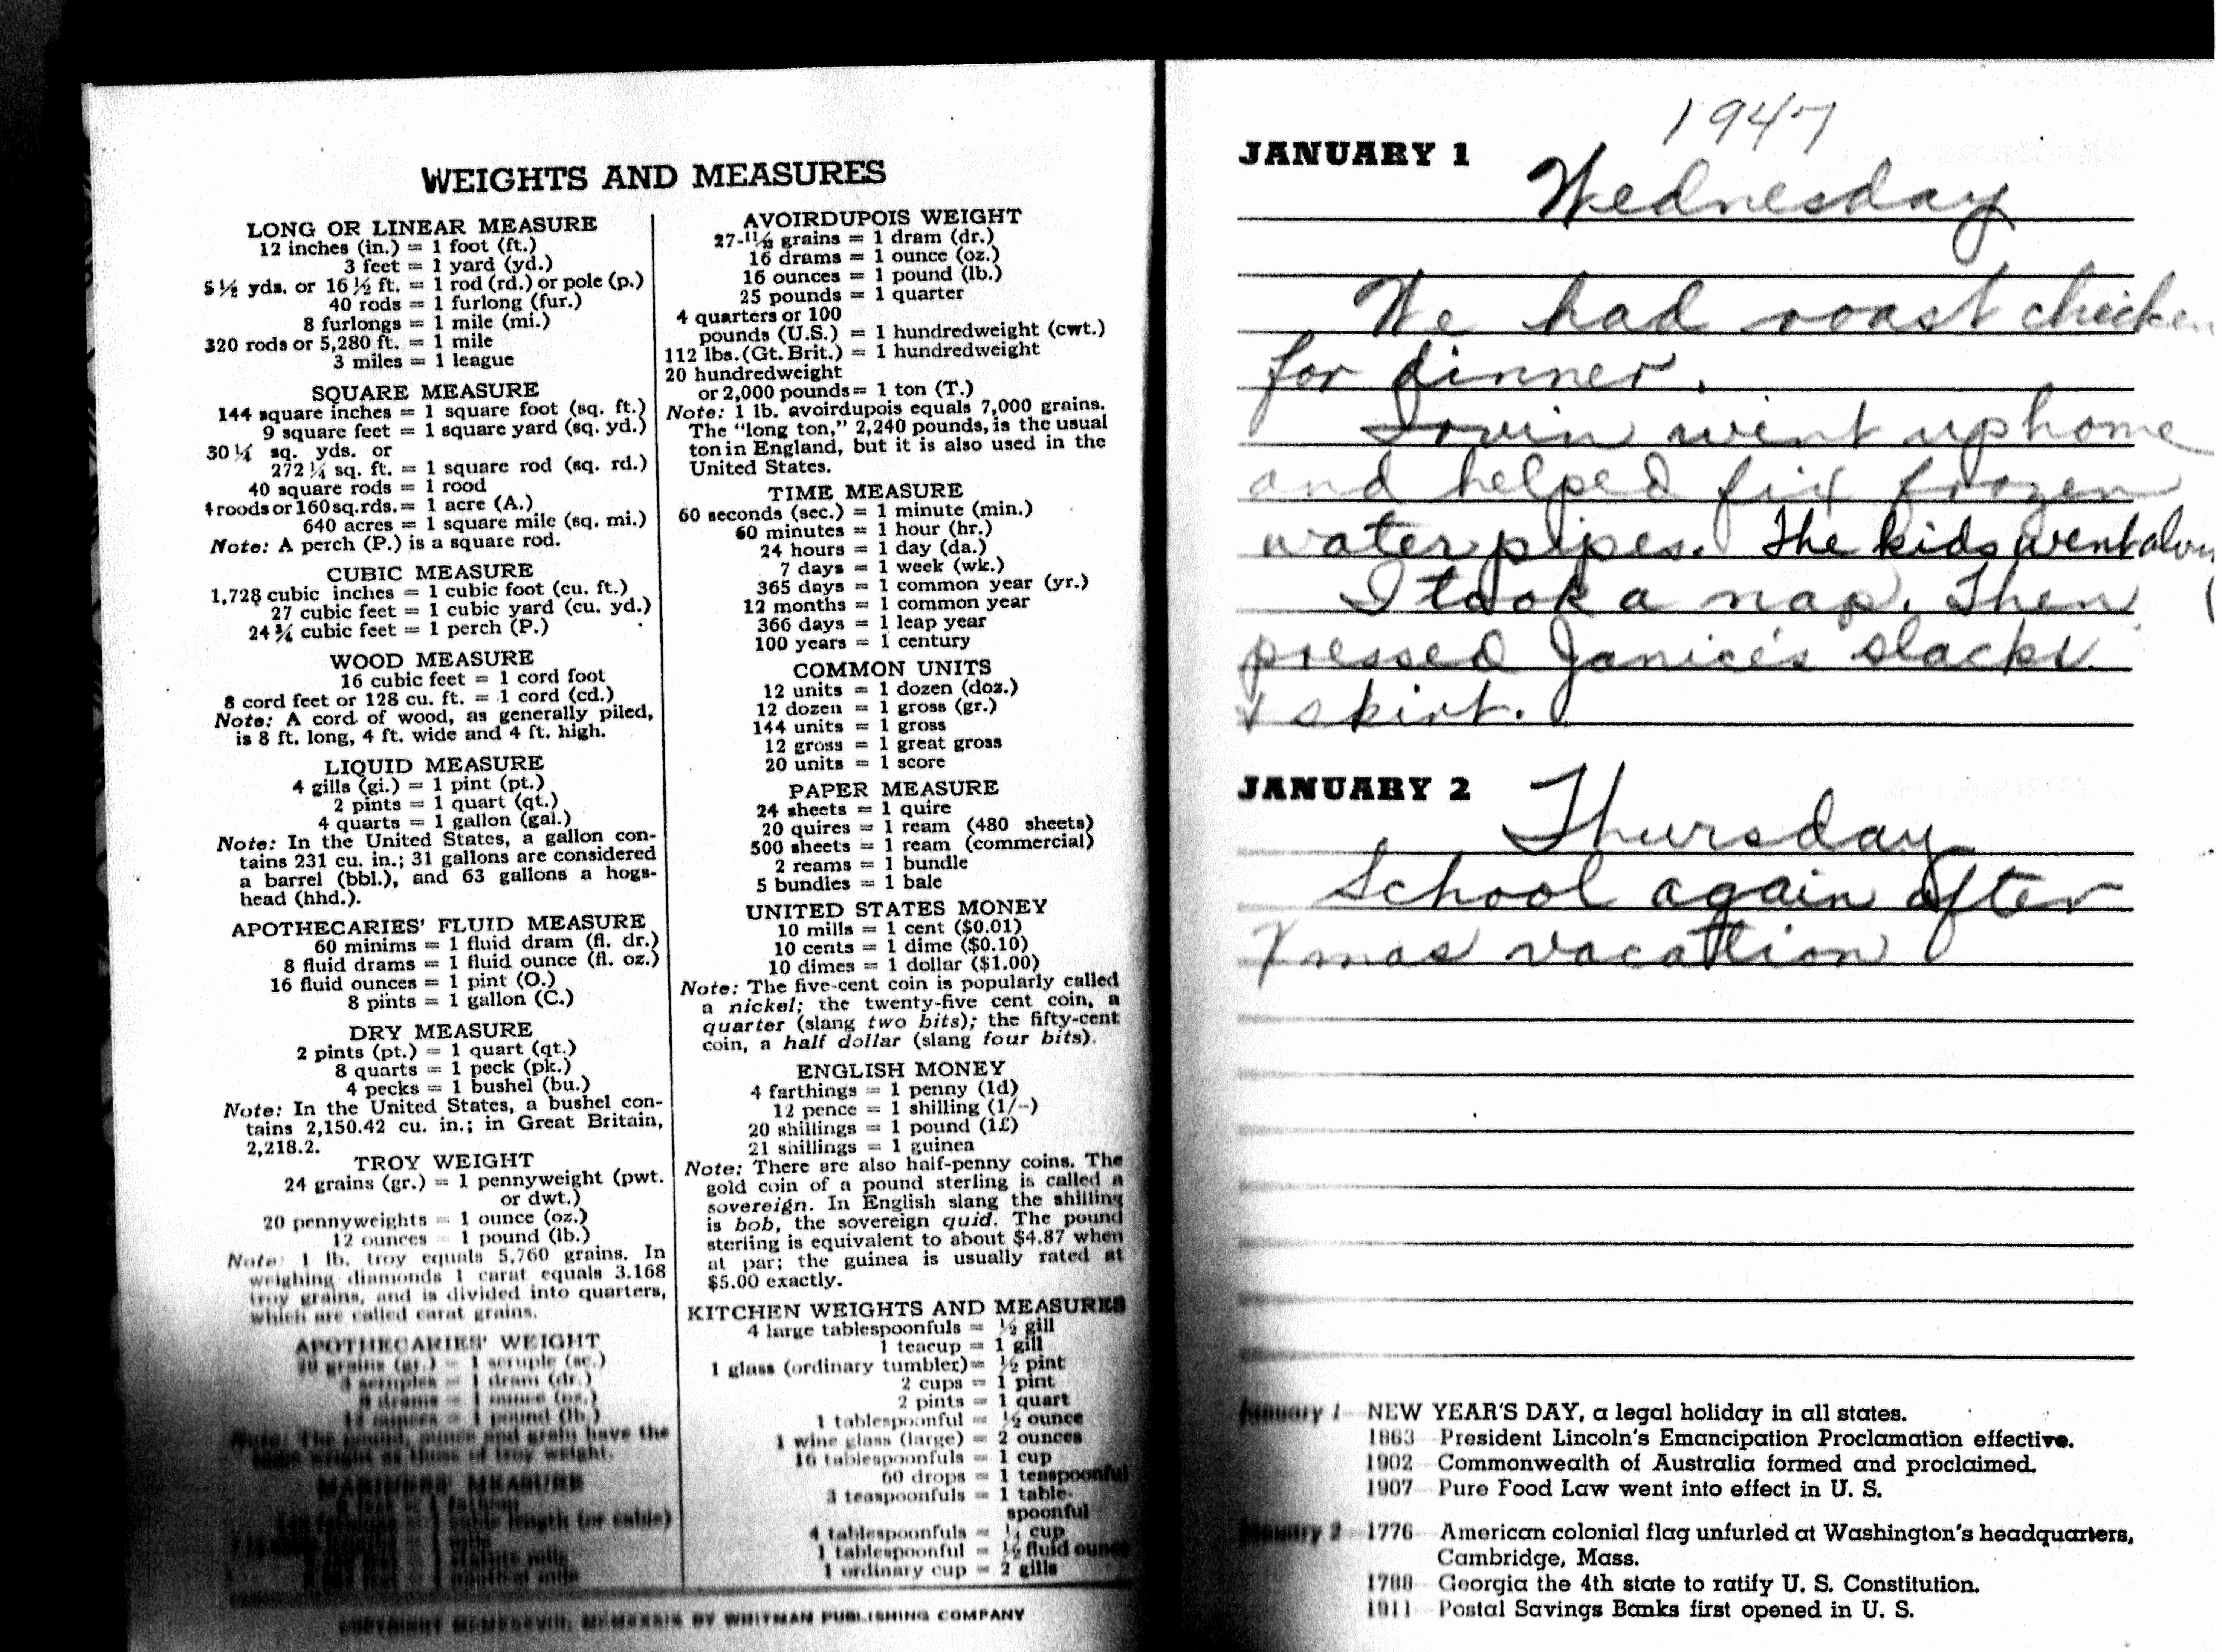 WEIGHTS AND MEASURES
LONG OR LINEAR MEASURE
12 inches (in.) = 1 foot (ft.)
3 feet = 1 yard (yd.)
5½ yds. or 16½ ft. = 1 rod (rd.) or pole (p.)
40 rods = 1 furlong (fur.)
8 furlongs = 1 mile (mi.)
320 rods or 5,280 ft. = 1 mile
3 miles = 1 league
SQUARE MEASURE
144 square inches = 1 square foot (sq. ft.)
9 square feet = 1 square yard (sq. yd.)
30¼ sq. yds. or
272¼ sq. ft. = 1 square rod (sq. rd.)
40 square rods = 1 rood
4 roods or 160 sq. rds. = 1 acre (A.)
640 acres = 1 square mile (sq. mi.)
Note: A perch (P.) is a square rod.
CUBIC MEASURE
1,728 cubic inches = 1 cubic foot (cu. ft.)
27 cubic feet = 1 cubic yard (cu. yd.)
24¾ cubic feet = 1 perch (P.)
WOOD MEASURE
16 cubic feet = 1 cord foot
8 cord feet or 128 cu. ft. = 1 cord (cd.)
Note: A cord of wood, as generally piled,
is 8 ft. long, 4 ft. wide and 4 ft. high.
LIQUID MEASURE
4 gills (gi.) = 1 pint (pt.)
2 pints = 1 quart (qt.)
4 quarts = 1 gallon (gal.)
Note: In the United States, a gallon con-
tains 231 cu. in.; 31 gallons are considered
a barrel (bbl.), and 63 gallons a hogs-
head (hhd.).
APOTHECARIES' FLUID MEASURE
60 minims = 1 fluid dram (fl. dr.)
8 fluid drams = 1 fluid ounce (fl. oz.)
16 fluid ounces = 1 pint (O.)
8 pints = 1 gallon (C.)
DRY MEASURE
2 pints (pt.) = 1 quart (qt.)
8 quarts = 1 peck (pk.)
4 pecks = 1 bushel (bu.)
Note: In the United States, a bushel con-
tains 2,150.42 cu. in.; in Great Britain,
2,218.2.
TROY WEIGHT
24 grains (gr.) = 1 pennyweight (pwt.
or dwt.)
20 pennyweights = 1 ounce (oz.)
12 ounces = 1 pound (lb.)
Note: 1 lb. troy equals 5,760 grains. In
weighing diamonds 1 carat equals 3.168
troy grains, and is divided into quarters,
which are called carat grains.
APOTHECARIES' WEIGHT
20 grains (gr.) = 1 scruple (sc.)
3 scruples = 1 dram (dr.)
8 drams = 1 ounce (oz.)
12 ounces = 1 pound (lb.)
Note: The pound, ounce and grain have the
same weight as those of troy weight.
MARINERS' MEASURE
AVOIRDUPOIS WEIGHT
27-11/32 grains = 1 dram (dr.)
16 drams = 1 ounce (oz.)
16 ounces = 1 pound (lb.)
25 pounds = 1 quarter
4 quarters or 100
pounds (U.S.) = 1 hundredweight (cwt.)
112 lbs. (Gt. Brit.) = 1 hundredweight
20 hundredweight
or 2,000 pounds = 1 ton (T.)
Note: 1 lb. avoirdupois equals 7,000 grains.
The "long ton," 2,240 pounds, is the usual
ton in England, but it is also used in the
United States.
TIME MEASURE
60 seconds (sec.) = 1 minute (min.)
60 minutes = 1 hour (hr.)
24 hours = 1 day (da.)
7 days = 1 week (wk.)
365 days = 1 common year (yr.)
12 months = 1 common year
366 days = 1 leap year
100 years = 1 century
COMMON UNITS
12 units = 1 dozen (doz.)
12 dozen = 1 gross (gr.)
144 units = 1 gross
12 gross = 1 great gross
20 units = 1 score
PAPER MEASURE
24 sheets = 1 quire
20 quires = 1 ream (480 sheets)
500 sheets = 1 ream (commercial)
2 reams = 1 bundle
5 bundles = 1 bale
UNITED STATES MONEY
10 mills = 1 cent ($0.01)
10 cents = 1 dime ($0.10)
10 dimes = 1 dollar ($1.00)
Note: The five-cent coin is popularly called
a nickel; the twenty-five cent coin, a
quarter (slang two bits); the fifty-cent
coin, a half dollar (slang four bits).
ENGLISH MONEY
4 farthings = 1 penny (1d)
12 pence = 1 shilling (1/-)
20 shillings = 1 pound (1£)
21 shillings = 1 guinea
Note: There are also half-penny coins. The
gold coin of a pound sterling is called a
sovereign. In English slang the shilling
is bob, the sovereign quid. The pound
sterling is equivalent to about $4.87 when
at par; the guinea is usually rated at
$5.00 exactly.
KITCHEN WEIGHTS AND MEASURES
4 large tablespoonfuls = ½ gill
1 teacup = 1 gill
1 glass (ordinary tumbler) = ½ pint
2 cups = 1 pint
2 pints = 1 quart
1 tablespoonful = ½ ounce
1 wine glass (large) = 2 ounces
16 tablespoonfuls = 1 cup
60 drops = 1 teaspoonful
3 teaspoonfuls = 1 table-
spoonful
4 tablespoonfuls = ¼ cup
1 tablespoonful = ½ fluid ounce
1 ordinary cup = 2 gills
BY WHITMAN PUBLISHING COMPANY
1947
JANUARY 1
Wednesday
We had roast chicken
for dinner.
went up home
and helped fix frozen
water pipes. The kids went along
I took a nap. Then
pressed Janice's slacks
& skirt.
JANUARY 2
Thursday
School again after
Xmas vacation
January 1 NEW YEAR'S DAY, a legal holiday in all states.
1863 President Lincoln's Emancipation Proclamation effective.
1902 Commonwealth of Australia formed and proclaimed.
1907 Pure Food Law went into effect in U. S.
January 2 1776 American colonial flag unfurled at Washington's headquarters,
Cambridge, Mass.
1788 Georgia the 4th state to ratify U. S. Constitution.
1911 Postal Savings Banks first opened in U. S.